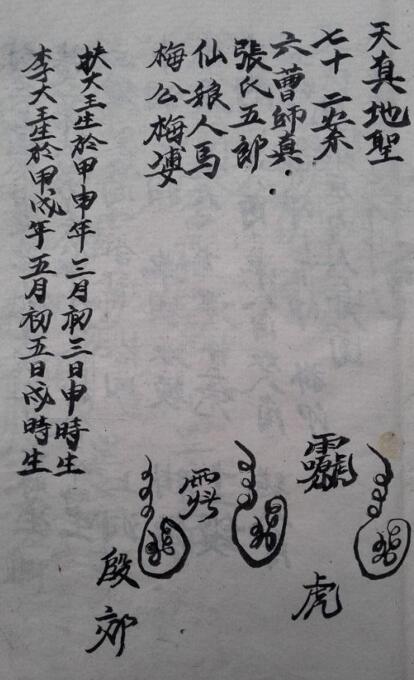 天真地聖
七十二案
六曹師真
張氏五郎
仙娘人馬
梅公梅婆
扶大王生於甲申年三月初三日申時生
李大王生於甲戌年五月初五日戌時生
虎
殷郊